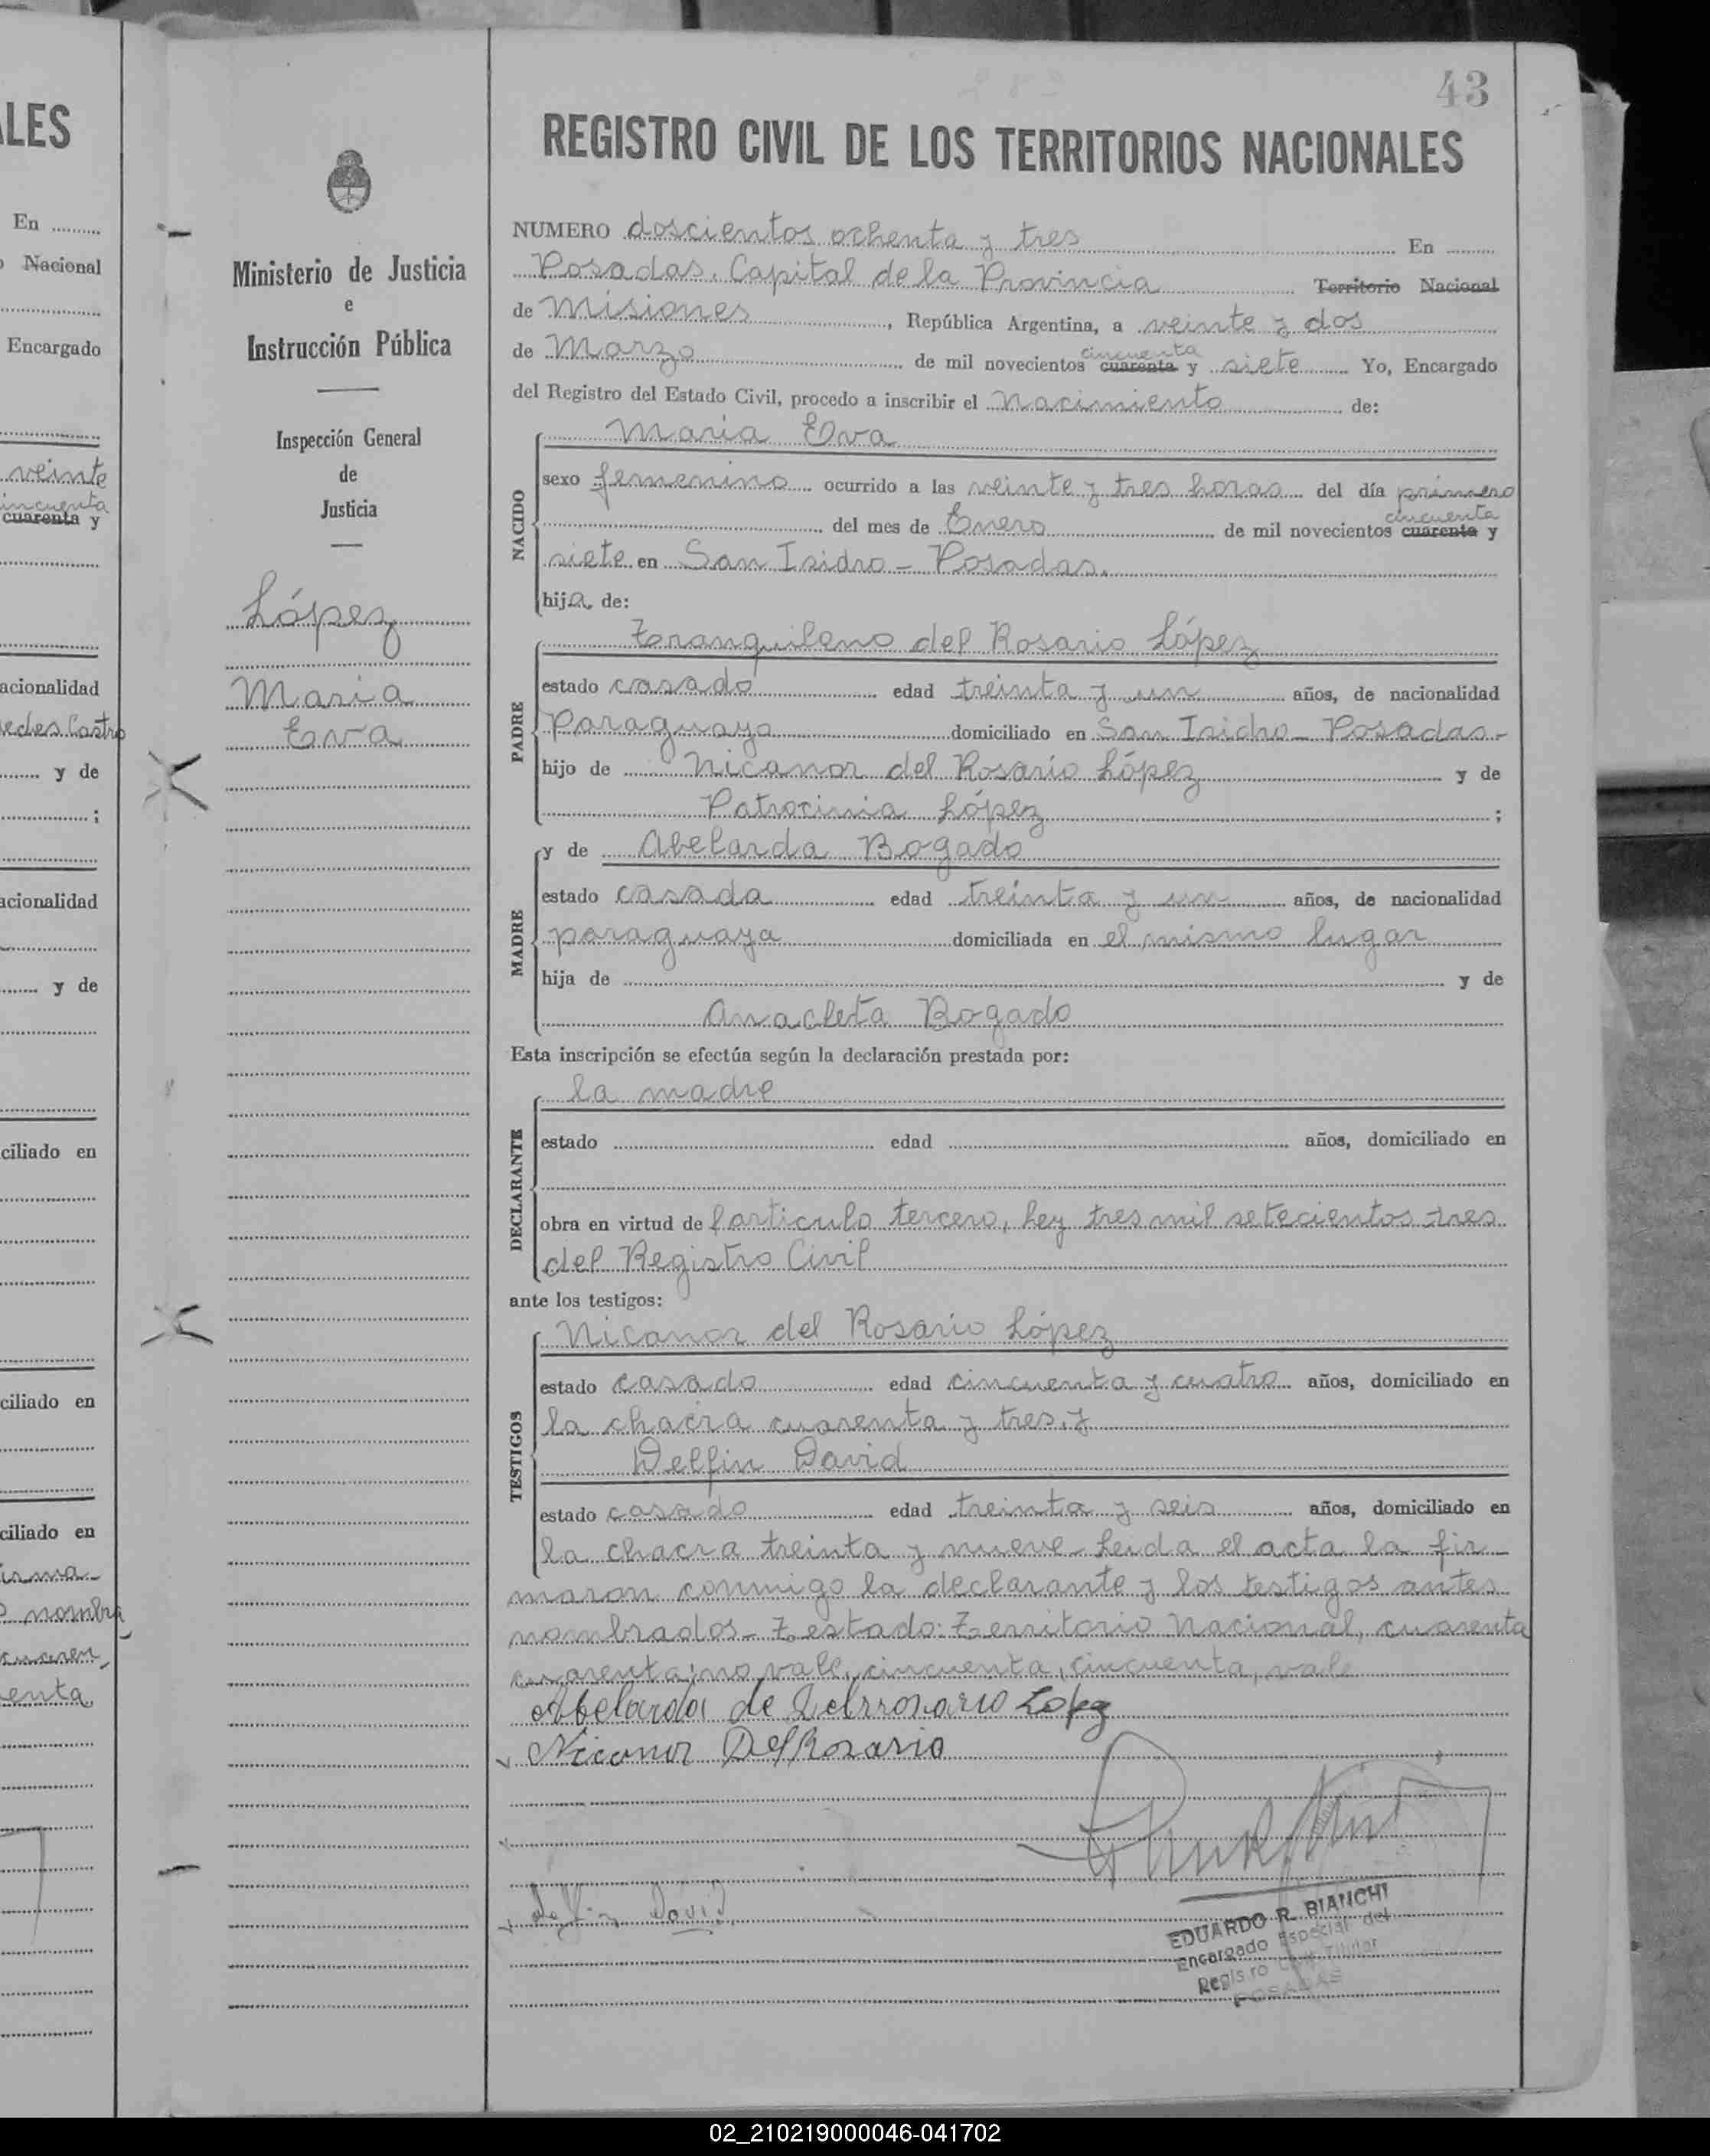 43
REGISTRO CIVIL DE LOS TERRITORIOS NACIONALES
NUMERO doscientos ochenta y tres En
Posadas. Capital de la Provincia Territorio Nacional
de Misiones, República Argentina, a veinte y dos
de Marzo de mil novecientos cincuenta cuarenta y siete Yo, Encargado
del Registro del Estado Civil, procedo a inscribir el Nacimiento de:
NACIDO
Maria Elva
sexo femenino ocurrido a las veinte y tres horas del día primero
del mes de Enero de mil novecientos cincuenta cuarenta y
siete en San Isidro - Posadas.
hija de:
PADRE
Tranquileno del Rosario López
estado casado edad treinta y un años, de nacionalidad
Paraguaya domiciliado en San Isidro - Posadas-
hijo de Nicanor del Rosario López y de
Patrocinia López ;
MADRE
y de Abelarda Bogado
estado casada edad treinta y un años, de nacionalidad
paraguaya domiciliada en el mismo lugar
hija de y de
Anacleta Bogado
Esta inscripción se efectúa según la declaración prestada por:
DECLARANTE
la madre
estado edad años, domiciliado en
obra en virtud de l'articulo tercero, Ley tres mil setecientos tres
del Registro Civil
ante los testigos:
TESTIGOS
Nicanor del Rosario López
estado casado edad cincuenta y cuatro años, domiciliado en
la chacra cuarenta y tres, y
Delfin David
estado casado edad treinta y seis años, domiciliado en
la chacra treinta y nueve - Leida el acta la fir-
maron conmigo la declarante y los testigos antes
nombrados - Testado: Territorio Nacional, cuarenta
cuarenta: no vale, cincuenta, cincuenta, vale
Abelarda de Delrrosario Lopez
Nicanor DelRosario
Delfin David
EDUARDO R. BIANCHI
Encargado Especial del
Registro Civil Titular
POSADAS
Ministerio de Justicia
e
Instrucción Pública
Inspección General
de
Justicia
López
Maria
Elva
LES
En
Nacional
Encargado
veinte
cincuenta
cuarenta y
acionalidad
edes Castro
y de
;
acionalidad
y de
ciliado en
ciliado en
ciliado en
nombra
enta
02_210219000046-041702